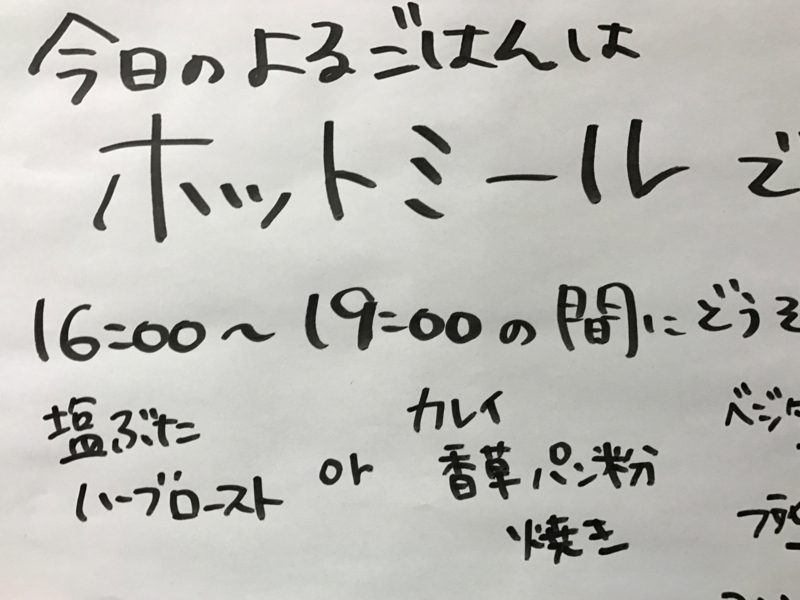 今日のよるごはんは
ホットミールで
16:00〜19:00の間にどうぞ
塩ぶた
ハーブロースト
or
カレイ
香草パン粉
焼き
ベジ